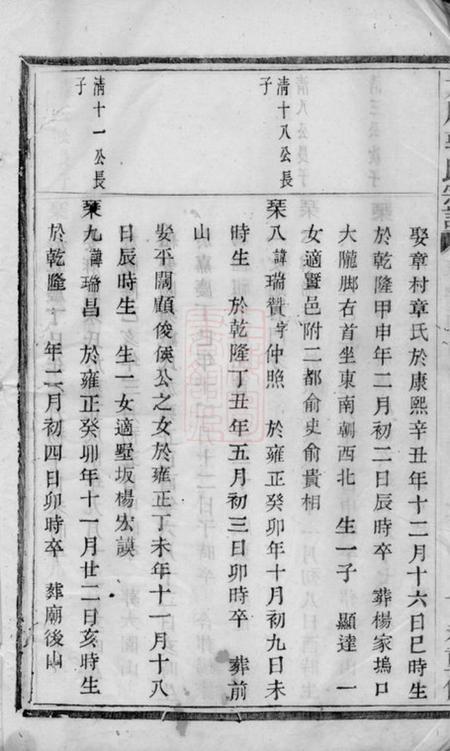 娶章村章氏於康熙辛丑年十二月十六日巳時生
於乾隆甲申年二月初二日辰時卒 葬楊家塢口
大隴脚右首坐東南朝西北 生一子 顯達 一
女適暨邑附二都俞史俞貴相
清十八公長子
琹八諱瑞贊字仲照 於雍正癸卯年十月初九日未
時生 於乾隆丁丑年五月初三日卯時卒 葬前
山
娶平闊顧俊僙公之女於雍正丁未年十一月十八
日辰時生 生一女適墅坂楊宏謨
清十一公長子
琹九諱瑞昌 於雍正癸卯年十一月廿二日亥時生
於乾隆 年二月初四日卯時卒 葬廟後山